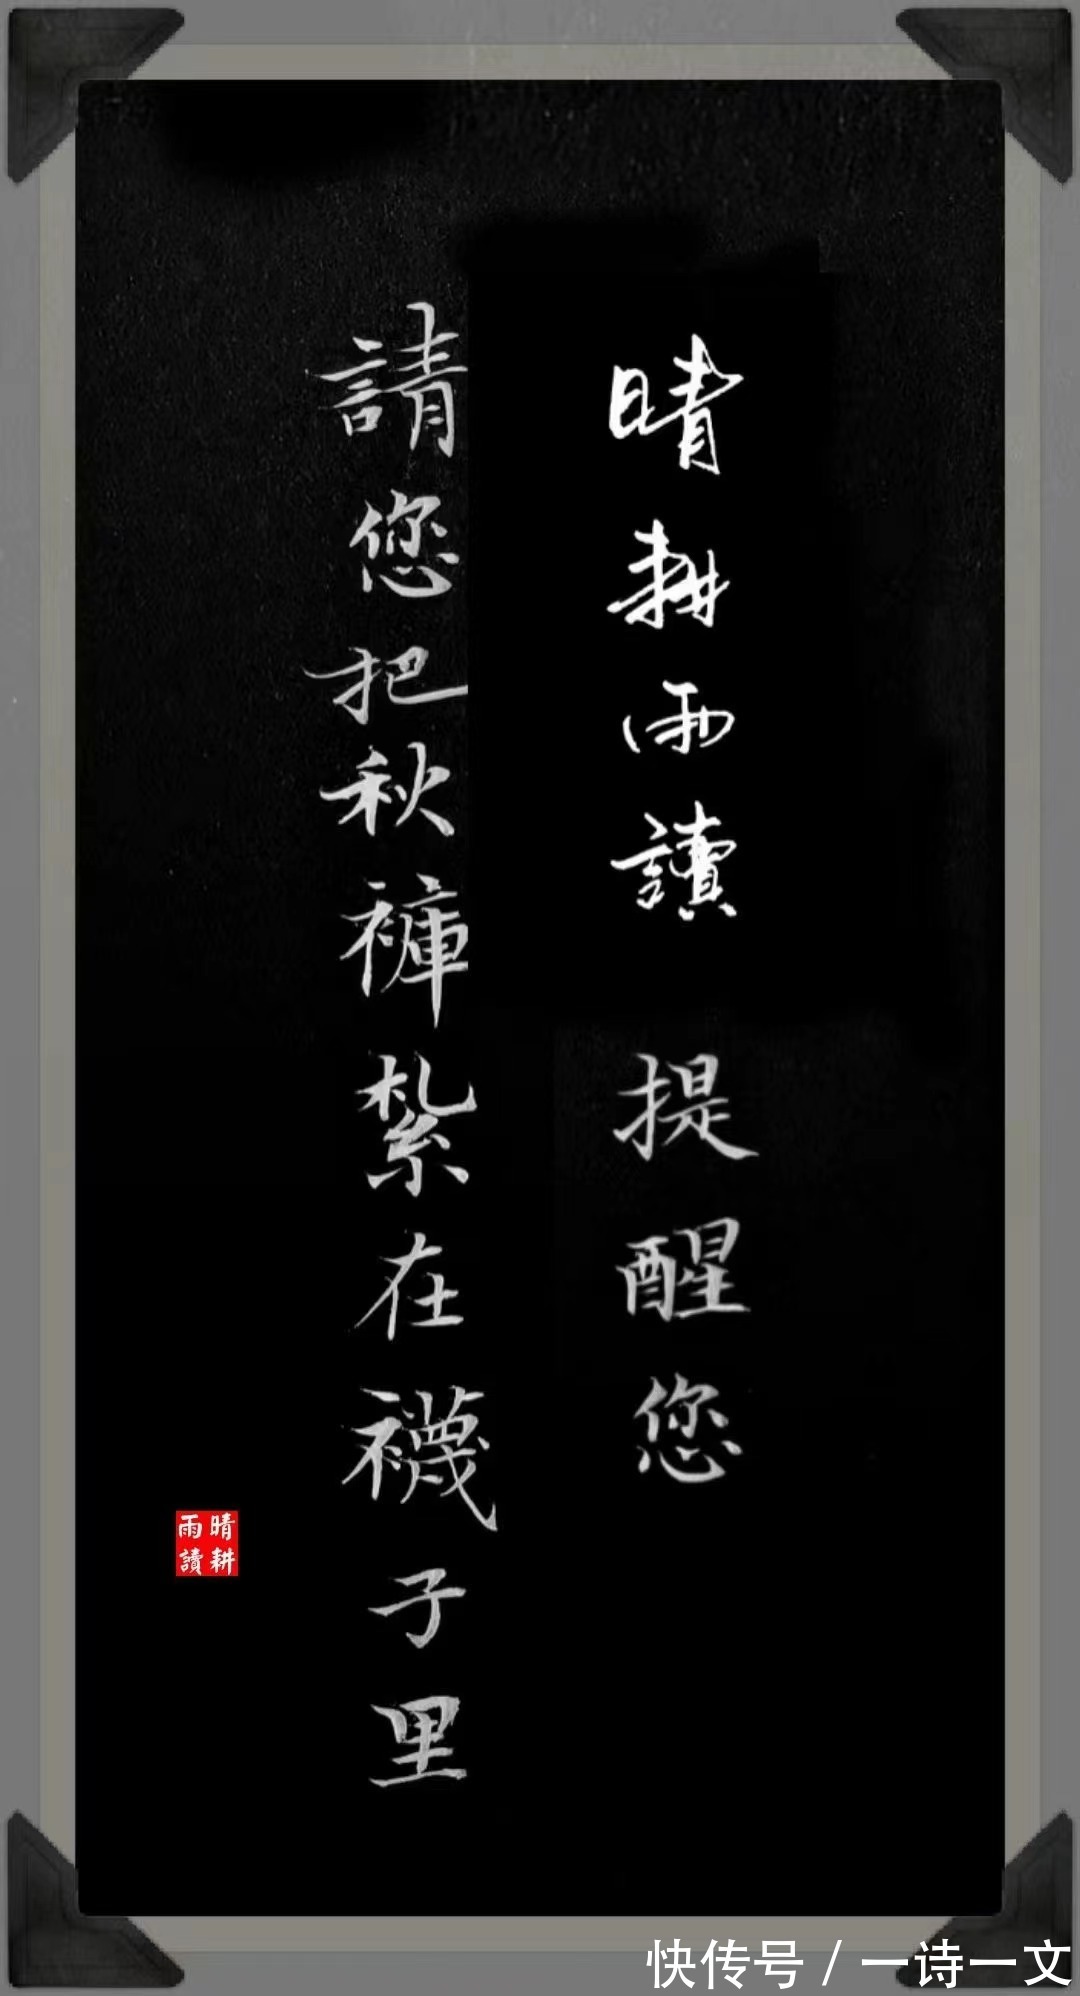 晴耕雨讀 提醒您
請您把秋褲紮在襪子里
晴耕
雨讀
快传号 / 一诗一文